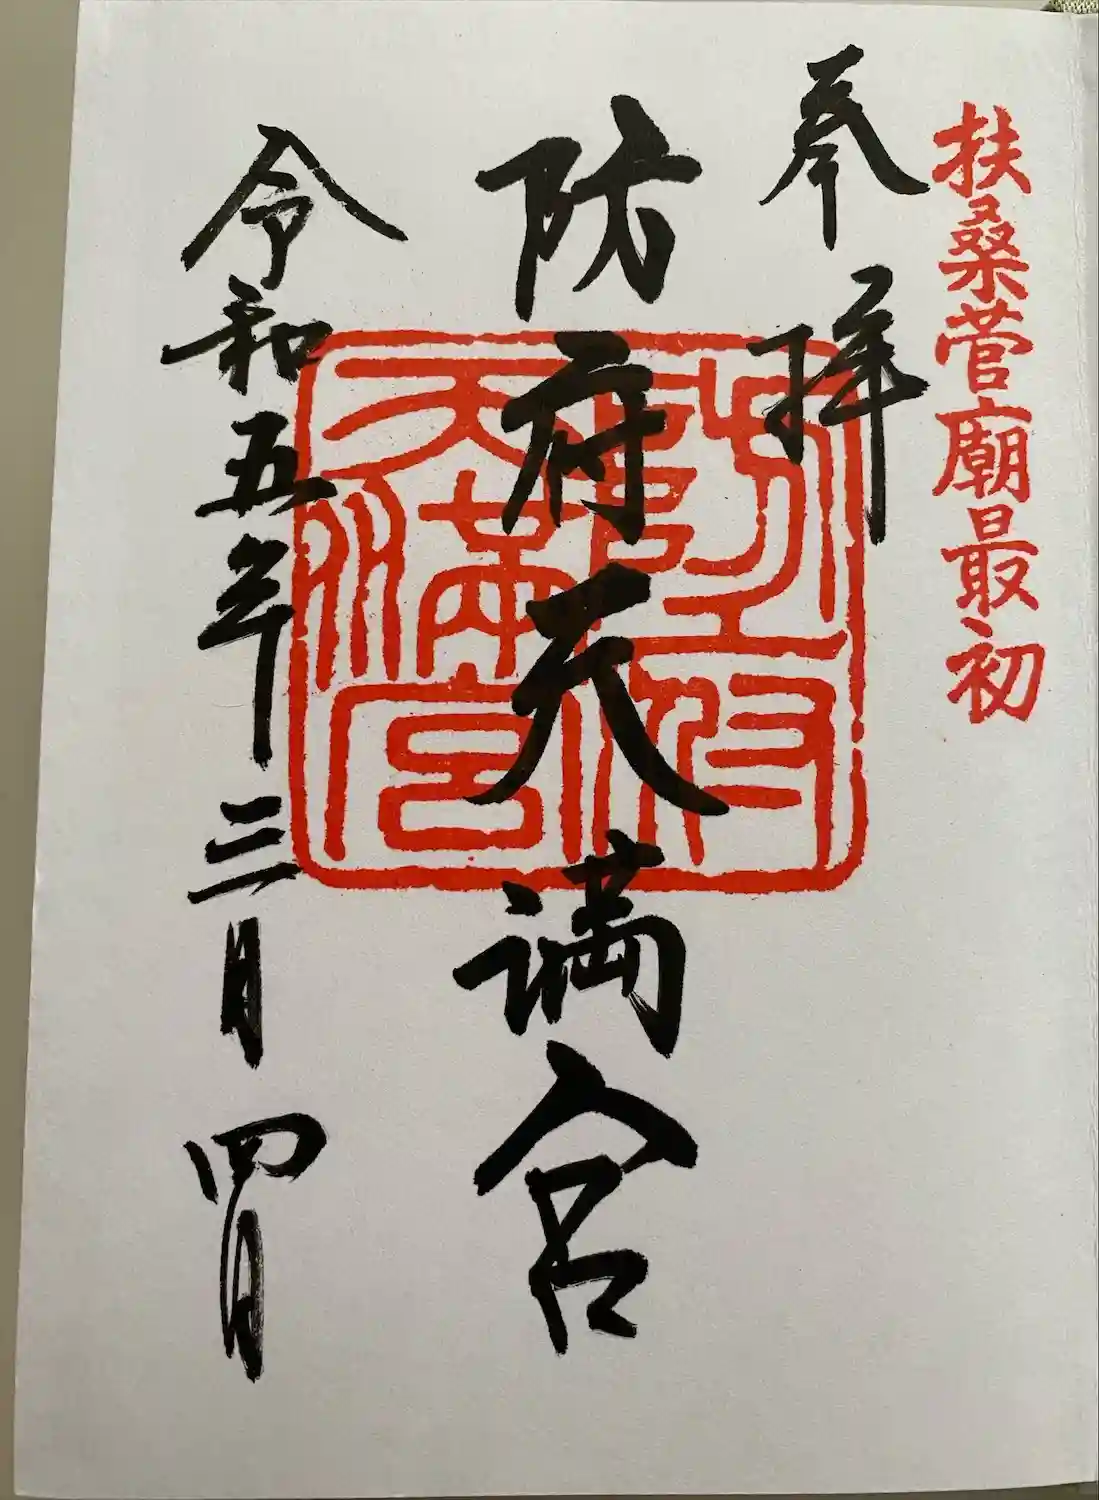 扶桑菅廟最初
奉拝
防府天満宮
天満宮
令和五年三月四日